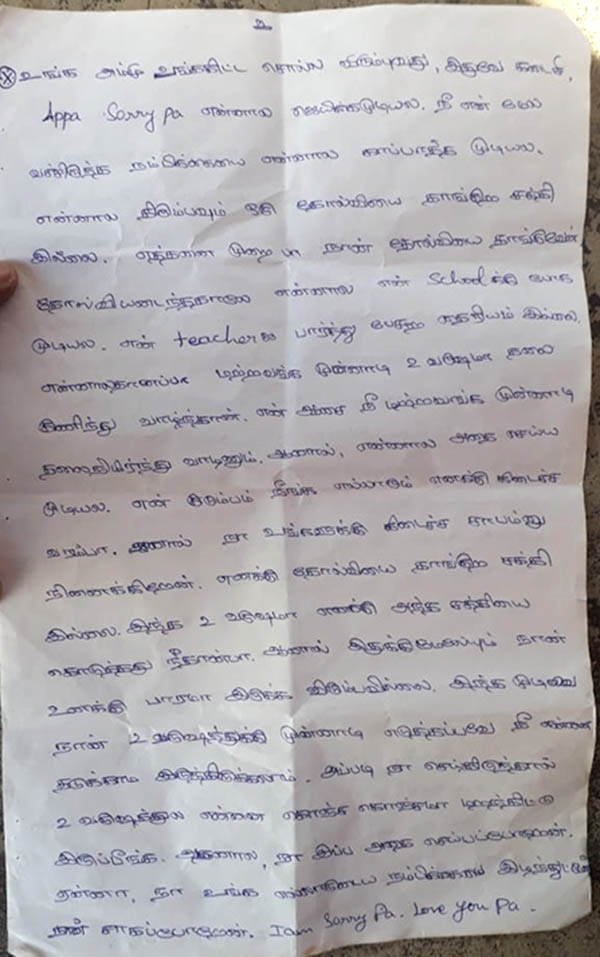 2
உங்க அம்மு உங்ககிட்ட சொல்ல விரும்புவது, இதுவே கடைசி,
Appa Sorry pa என்னால ஜெயிக்கமுடியல. நீ என் மேல
வச்சிருந்த நம்பிக்கையை என்னால காப்பாத்த முடியல.
என்னால திரும்பவும் ஒரு தோல்வியை தாங்கும் சக்தி
இல்லை. எத்தனை முறை பா நான் தோல்வியை தாங்குவேன்
தோல்வியடைந்ததாலே என்னால என் School க்கு போக
முடியல. என் teacher ஐ பார்த்து பேசவும் தைரியம் இல்லை.
என்னாலதானப்பா முன்னாடி 2 வருஷமா தலை
குனிந்து வாழ்ந்தான். என் ஆசை நீ முன்னாடி
தலைநிமிர்ந்து வாழனும். ஆனால், என்னால அதை செய்ய
முடியல. என் குடும்பம் நீங்க எல்லாரும் எனக்கு கிடைச்ச
வரம்பா. ஆனால் நா உங்களுக்கு கிடைச்ச சாபம்னு
நினைக்கிறேன். எனக்கு தோல்வியை தாங்கும் சக்தி
இல்லை. இந்த 2 வருஷமா எனக்கு அந்த சக்தியை
கொடுத்தது நீதான்பா. ஆனால் இதுக்குமேலயும் நான்
உனக்கு பாரமா இருக்க விரும்பவில்லை. இந்த முடிவை
நான் 2 வருஷத்துக்கு முன்னாடி எடுத்தப்பவே நீ என்னை
தடுக்காம இருந்திருக்கலாம். அப்படி நா செய்திருந்தால்
2 வருஷத்துல என்னை கொஞ்ச கொஞ்சமா
இருப்பீங்க. ஆதனால, நா இப்ப அதை செய்யப்போறேன்.
ஏன்னா, நா உங்க நம்பிக்கையை இழந்துட்டேன்
நான் சாகப்போறேன். I am Sorry Pa. Love you Pa.